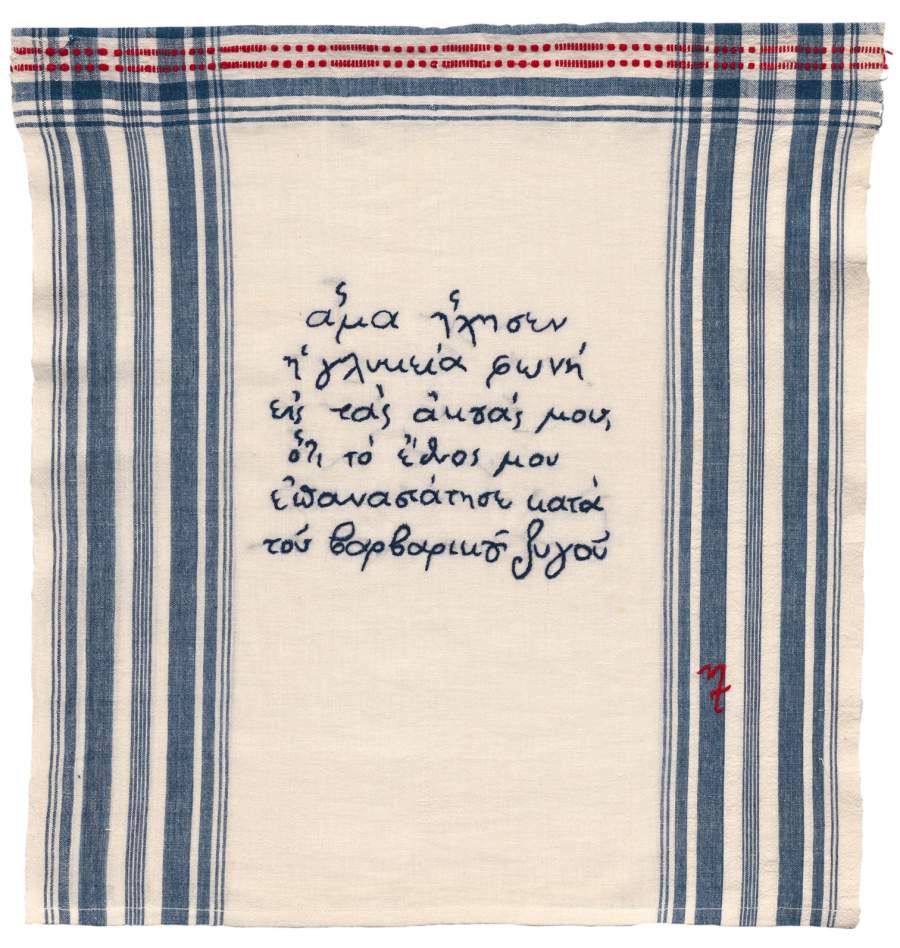 ἅμα ἤχησεν
ἡ γλυκεία φωνή
εἰς τὰς ἀκοάς μου,
ὅτι τό ἔθνος μου
ἐπαναστάτησε κατὰ
τοῦ βαρβαρικοῦ ζυγοῦ